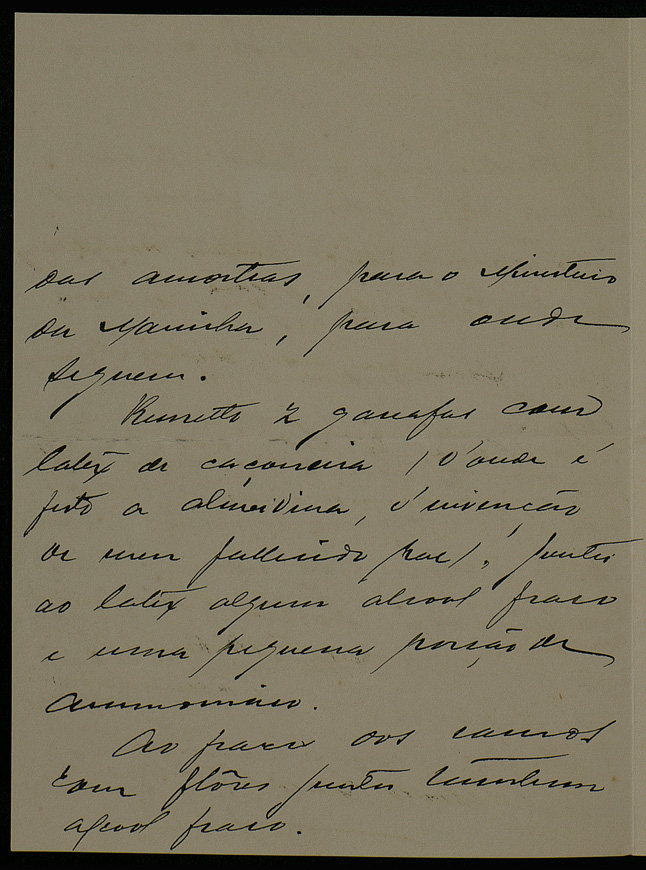 das amostras, para o Ministerio
da Marinha, para onde
seguem.
Remetto 2 garrafas com
latex de caconeira (d'onde é
feito a almeidina, d'invenção
de meu fallecido pae). Juntei
ao latex algum alcool fraco
e uma pequena porção de
ammoniaco.
Ao frasco dos ramos
com flôres juntei tambem
alcool fraco.